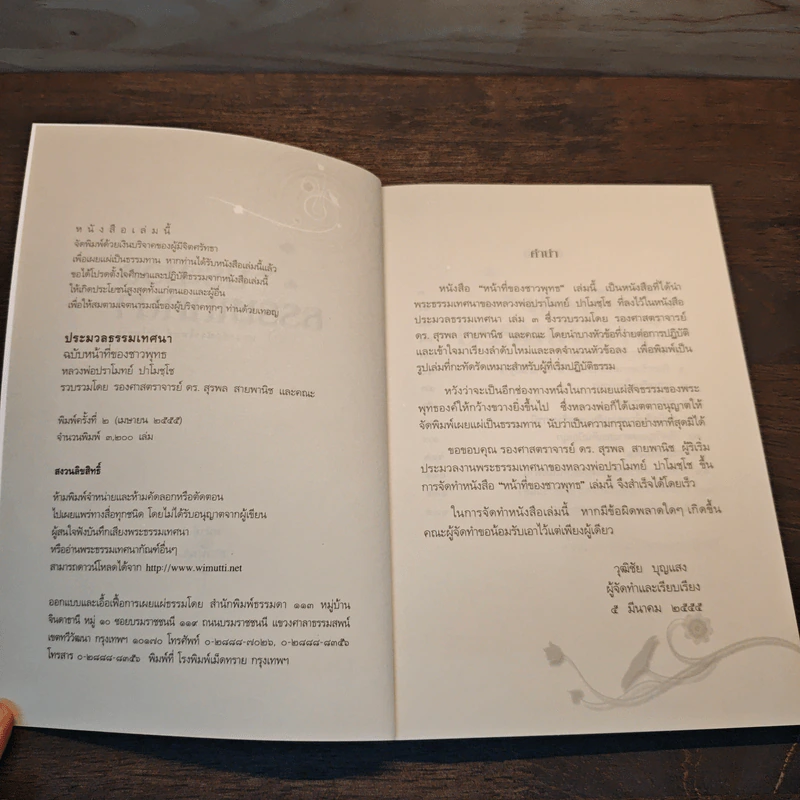 หนังสือเล่มนี้
จัดพิมพ์ด้วยเงินบริจาคของผู้มีจิตศรัทธา
เพื่อเผยแผ่เป็นธรรมทาน หากท่านได้รับหนังสือเล่มนี้แล้ว
ขอได้โปรดตั้งใจศึกษาและปฏิบัติธรรมจากหนังสือเล่มนี้
ให้เกิดประโยชน์สูงสุดทั้งแก่ตนเองและผู้อื่น
เพื่อให้สมตามเจตนารมณ์ของผู้บริจาคทุกๆ ท่านด้วยเทอญ
ประมวลธรรมเทศนา
ฉบับหน้าที่ของชาวพุทธ
หลวงพ่อปราโมทย์ ปาโมชฺโช
รวบรวมโดย รองศาสตราจารย์ ดร. สุรพล สายพานิช และคณะ
พิมพ์ครั้งที่ ๒ (เมษายน ๒๕๕๕)
จำนวนพิมพ์ ๓,๒๐๐ เล่ม
สงวนลิขสิทธิ์
ห้ามพิมพ์จำหน่ายและห้ามคัดลอกหรือตัดตอน
ไปเผยแพร่ทางสื่อทุกชนิด โดยไม่ได้รับอนุญาตจากผู้เขียน
ผู้สนใจฟังบันทึกเสียงพระธรรมเทศนา
หรืออ่านพระธรรมเทศนากัณฑ์อื่นๆ
สามารถดาวน์โหลดได้จาก http://www.wimutti.net
ออกแบบและเอื้อเฟื้อการเผยแผ่ธรรมโดย สำนักพิมพ์ธรรมดา ๑๑๓ หมู่บ้าน
จินดาธานี หมู่ ๑๐ ซอยบรมราชชนนี ๑๑๙ ถนนบรมราชชนนี แขวงศาลาธรรมสพน์
เขตทวีวัฒนา กรุงเทพฯ ๑๐๑๗๐ โทรศัพท์ ๐-๒๘๘๘-๗๐๒๖, ๐-๒๘๘๘-๘๓๕๖
โทรสาร ๐-๒๘๘๘-๘๓๕๖ พิมพ์ที่ โรงพิมพ์เม็ดทราย กรุงเทพฯ
คำนำ
หนังสือ “หน้าที่ของชาวพุทธ” เล่มนี้ เป็นหนังสือที่ได้นำ
พระธรรมเทศนาของหลวงพ่อปราโมทย์ ปาโมชฺโช ที่ลงไว้ในหนังสือ
ประมวลธรรมเทศนา เล่ม ๓ ซึ่งรวบรวมโดย รองศาสตราจารย์
ดร. สุรพล สายพานิช และคณะ โดยนำบางหัวข้อที่ง่ายต่อการปฏิบัติ
และเข้าใจมาเรียงลำดับใหม่และลดจำนวนหัวข้อลง เพื่อพิมพ์เป็น
รูปเล่มที่กะทัดรัดเหมาะสำหรับผู้ที่เริ่มปฏิบัติธรรม
หวังว่าจะเป็นอีกช่องทางหนึ่งในการเผยแผ่สัจธรรมของพระ
พุทธองค์ให้กว้างขวางยิ่งขึ้นไป ซึ่งหลวงพ่อก็ได้เมตตาอนุญาตให้
จัดพิมพ์เผยแผ่เป็นธรรมทาน นับว่าเป็นความกรุณาอย่างหาที่สุดมิได้
ขอขอบคุณ รองศาสตราจารย์ ดร. สุรพล สายพานิช ผู้ริเริ่ม
ประมวลงานพระธรรมเทศนาของหลวงพ่อปราโมทย์ ปาโมชฺโช ขึ้น
การจัดทำหนังสือ “หน้าที่ของชาวพุทธ” เล่มนี้ จึงสำเร็จได้โดยเร็ว
ในการจัดทำหนังสือเล่มนี้ หากมีข้อผิดพลาดใดๆ เกิดขึ้น
คณะผู้จัดทำขอน้อมรับเอาไว้แต่เพียงผู้เดียว
วุฒิชัย บุญแสง
ผู้จัดทำและเรียบเรียง
๕ มีนาคม ๒๕๕๕